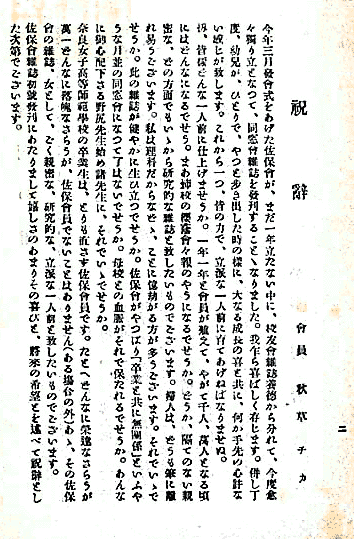 祝辭
會員 秋草チカ
今年三月發會式をあげた佐保會が、まだ一年立たない中に、校友會雜誌養德から分れて、今度愈
々獨り立となつて、同窓會雜誌を發刊することゝなりました。我乍ら喜ばしく存じます。併し丁
度、幼兒が、ひとりで、やつと歩き出した時の樣に、大なる成長の喜と共に、何か手先の心許な
い感じが致します。これから一つ、皆の力で、立派な一人前に育てあげねばなりませぬ。
扨、皆樣どんな一人前に仕上げませうか。一年一年と會員が殖えて、やがて千人、萬人となる頃
にはどんなになるでせう。まあ姉校の櫻蔭會々報のやうになるでせうか。どうか、隔てのない親
密な、どの方面でもいゝから研究的な雜誌と致したいものでございます。婦人は、どうも筆に離
れ易うございます。私は理科だからなどゝ、ことに億劫がる方が多うございます。それでいゝで
せうか。此の雜誌が健やかに生ひ立つでせうか。佐保會がやつぱり「卒業と共に無關係」といふや
うな月並の同窓會になつて了はないでせうか。母校との血脈がそれで保たれるでせうか。あんな
に御心配下さる野尻先生始め諸先生に、それでいゝでせうか。
奈良女子高等師範學校の卒業生は、とりも直さず佐保會員です。たとへどんなに榮達なさらうが
萬一どんなに落魄なさらうが、佐保會員でないことはありません(ある場合の外)あゝ、その佐保
會の雜誌、女として、ごく親密な、研究的な、立派な一人前と致したいものでございます。
佐保會雜誌初號發刊にあたりまして嬉しさのあまりその喜びと、將來の希望とを述べて祝辭とし
た次第でございます。
二